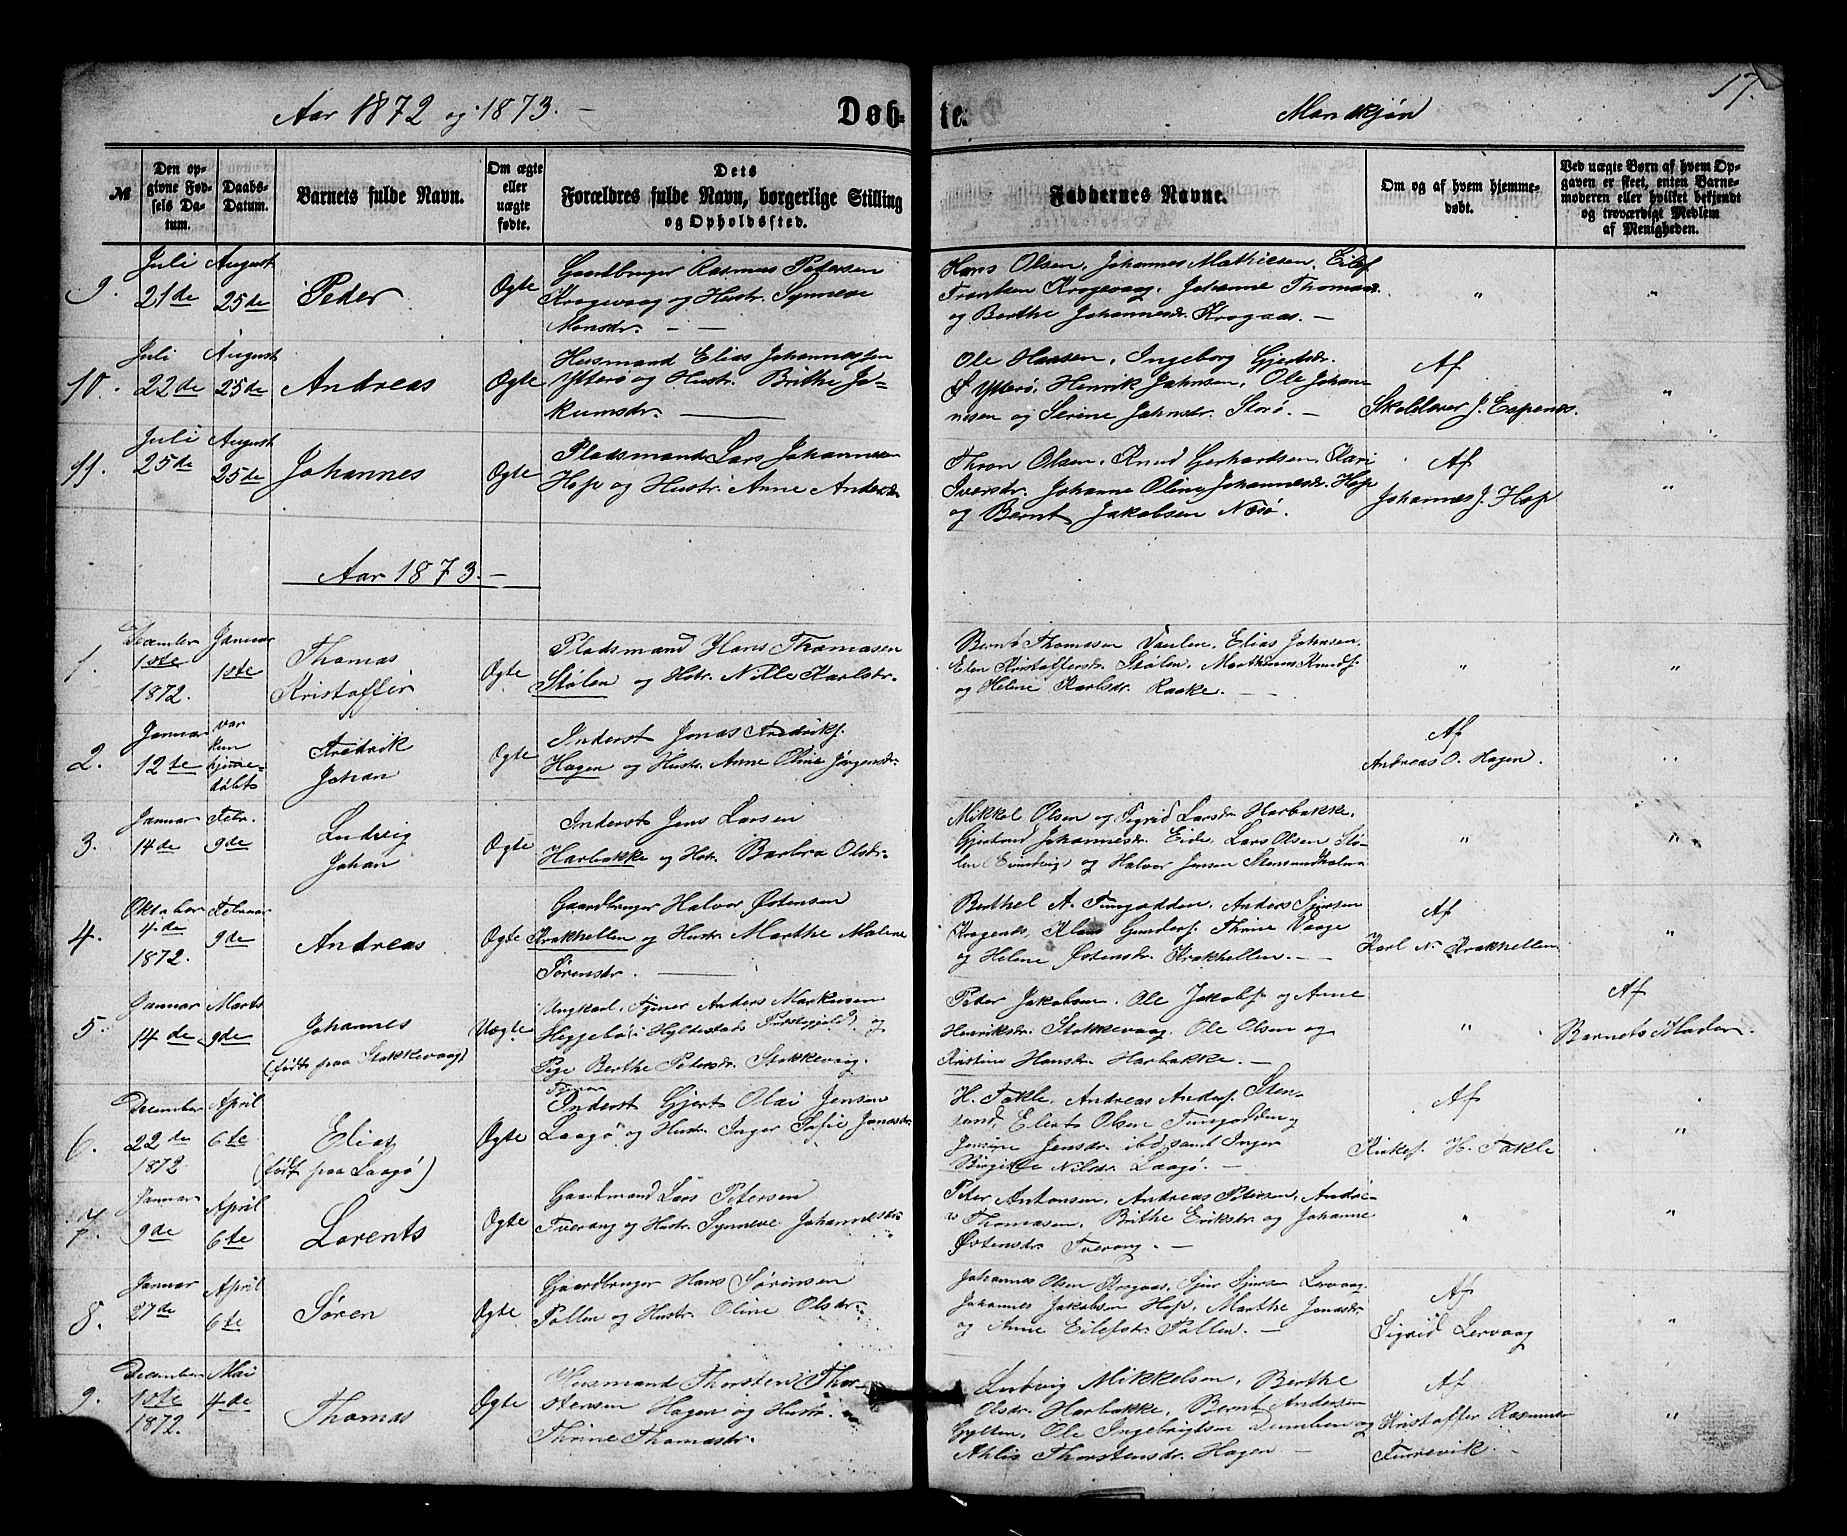 17.
Aar 1872 og 1873. —
Døb-
te.
Mandkjøn
№
Den op-
givne Fød-
sels Da-
tum.
Daabs-
Datum.
Barnets fulde Navn.
Om ægte
eller
uægte
fødte.
Dets
Forældres fulde Navn, borgerlige Stilling
og Opholdssted.
Faddernes Navne.
Om og af hvem hjemme-
døbt.
Ved uægte Børn af hvem Op-
gaven er skeet, enten Barne-
moderen eller hvilket bekjendt
og troværdigt Medlem
af Menigheden.
9.
Juli
21de
August
25de
Peder
Ægte
Gaardbruger Rasmus Pedersen
Krogevaag og Hustr. Synneve
Monsdr. — —
Hans Olsen, Johannes Mathiesen, Eilef
Frantsen Krogevaag, Johanne Thomasdr.
og Berthe Johannesdr. Krogaas. —
"
"
10.
Juli
22de
August
25de
Andreas
Ægte
Husmand Elias Johannessen
Ytterø og Hustr. Brithe Jo-
kumsdr. —
Ole Hansen, Ingeborg Gjertsdr.
Ytterø, Henrik Jahnsen, Ole Johan-
nesen og Serine Jahnsdr. Storø. —
Af
Skolelærer J. Espenes.
"
11.
Juli
25de
August
25de
Johannes
Ægte
Pladsmand Lars Johannesen
Hop og Hustr. Anne Andersdr
Thron Olsen, Knud Gerhardsen, Kari
Iversdr. Johanne Oline Johannesdr. Hop
og Bernt Jakobsen Nesø.
Af
Johannes J. Hop
"
Aar 1873. —
1.
December
1ste
1872.
Januar
1ste
Thomas
Kristoffer
Ægte
Pladsmand Hans Thomasen
Stølen og Hstr. Nille Karlsdr.
Bernt Thomasen Vaulen, Elias Johnsen,
Elen Kristoffersdr. Stølen, Marthinus Knuds.
og Helene Karlsdr. Raake. —
"
"
2.
Januar
12te
var
kun
hjemme-
døbt
Fredrik
Johan
Ægte
Inderst Jonas Fredriks.
Hagen og Hustr. Anne Oline Jørgensdr.
Af
Andreas O. Hagen.
"
3.
Januar
14de
Febr.
9de
Ludvig
Johan
Ægte
Inderst Jens Larsen
Harbakke og Hstr. Barbra Olsdr.
Mikkel Olsen og Sigrid Larsdr Harbakke,
Gjertrud Johannesdr. Eide, Lars Olsen Stø-
len (Evindvig) og Halvor Jensen Stensundholmen
"
"
4.
Oktober
4de
1872.
Februar
9de
Andreas
Ægte
Gaardbruger Halvor Østensen
Krakhellen og Hustr. Marthe Malene
Sørensdr. —
Berthel A. Tungodden, Anders Sjursen
Klaus Gunders. Thrine Vaage
og Helene Østensdr. Krakhellen. —
Af
Karl N. Krakhellen
"
5.
Januar
14de
Marts
9de
Johannes
(født paa Stokkevaag)
Uægte
Ungkarl, Tjener Anders Markussen
Heggebø i Hyllestads Præstegjeld, og
Pige Berthe Pedersdr. Stokkevaag.
Peder Jakobsen, Ole Jakobs. og Anne
Henriksdr. Stokkevaag, Ole Olsen og
Kristine Hansdr. Harbakke. —
"
Af
Barnets Moder.
6.
December
22de
1872
April
6te
Elias
(født paa Laagø)
Ægte
Inderst Gjert Olai Jensen
Laagø og Hustr. Inger Sofie Jonasdr.
H. Takle, Andreas Anders. Sten-
sund, Eliert Olsen Tungodden og
Jensine Jensdr. ibd. samt Inger
Birgitte Nilsdr. Laagø. —
Af
Kirkes. H. Takle
"
7.
Januar
9de
April
6te
Lorents
Ægte
Gaardmand Lars Petersen
Tverang og Hustr. Synneve Johannesdr.
Peter Antonsen, Andreas Petersen, Andre-
as Thomasen, Brithe Eriksdr. og Johanne
Østensdr. Tverang. —
"
"
8.
Januar
27de
April
6te
Søren
Ægte
Gaardbruger Hans Sørensen
Pollen og Hustr. Oline Olsdr.
Johannes Olsen Krogaas, Sjur Sjursen Lervaag,
Johannes Jakobsen Hop, Marthe Jonasdr.
og Anne Eilefsdr. Pollen. —
Af
Sigrid Lervaag
"
9.
December
1ste
1872.
Mai
4de
Thomas
Ægte
Husmand Thorsten Thor-
stensen Hagen og Hustr.
Thrine Thomasdr.
Ludvig Mikkelsen, Berthe
Olsdr. Harbakke, Bernt Andersen
Gylten, Ole Ingebrigtsen Dumben og
Ahlis Thorstensdr. Hagen —
Af
Kristoffer Rasmusen
Furevik. —
"